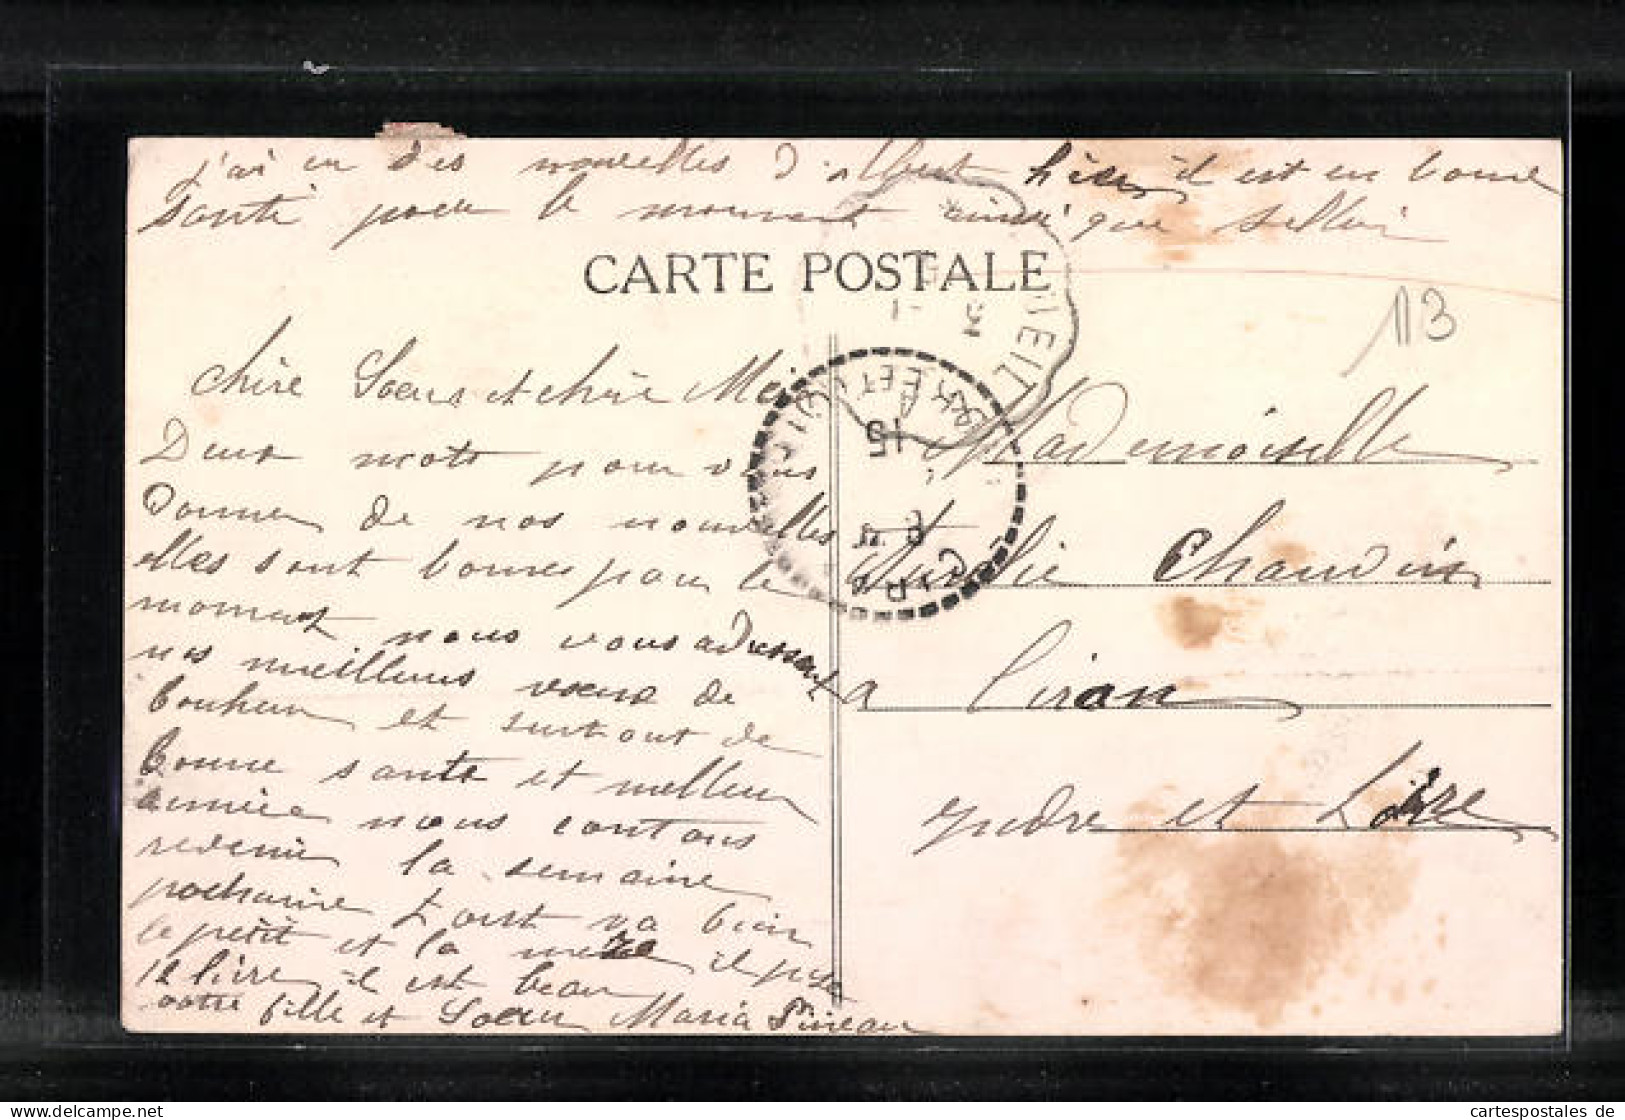 j'ai eu des nouvelles d'albert hier il est en bonne
santé pour le moment ainsi que
CARTE POSTALE
113
chère Soeur et chère
Deux mots pour vous
donner de nos nouvelles
elles sont bonnes pour le
moment nous vous adressant
nos meilleurs voeux de
bonheur et surtout de
bonne santé et meilleur
année nous contons
revenir la semaine
prochaine tout va bien
le petit et la mere il pese
12 livre il est beau
votre fille et Soeur Maria Pineau
Mademoiselle
Aurelie Chauvin
a Ciran
Yndre et Loire
15
cartespostales de